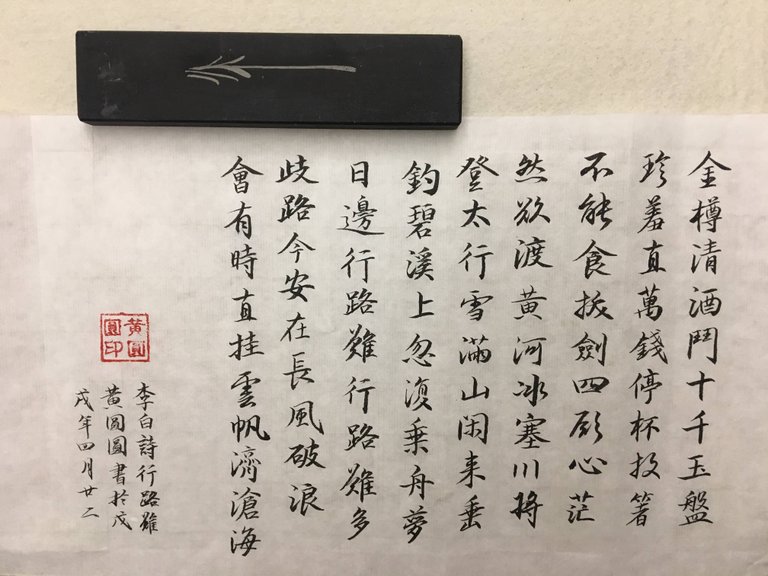 金樽清酒鬥十千玉盤
珍羞直萬錢停杯投箸
不能食拔劍四顧心茫
然欲渡黃河冰塞川將
登太行雪滿山閑来垂
釣碧溪上忽復乘舟夢
日邊行路難行路難多
歧路今安在長風破浪
會有時直挂雲帆濟滄海
李白詩行路難
黄圓圓書於戊
戌年四月廿二
黄圓
圓印